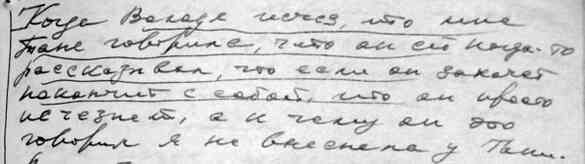 Когда Володя исчез, то мне
Таня говорила, что он ей когда-то
рассказывал, что если он захочет
покончит с собой, то он просто
исчезнет, а к чему он это
говорил я не выяснила у Тани.